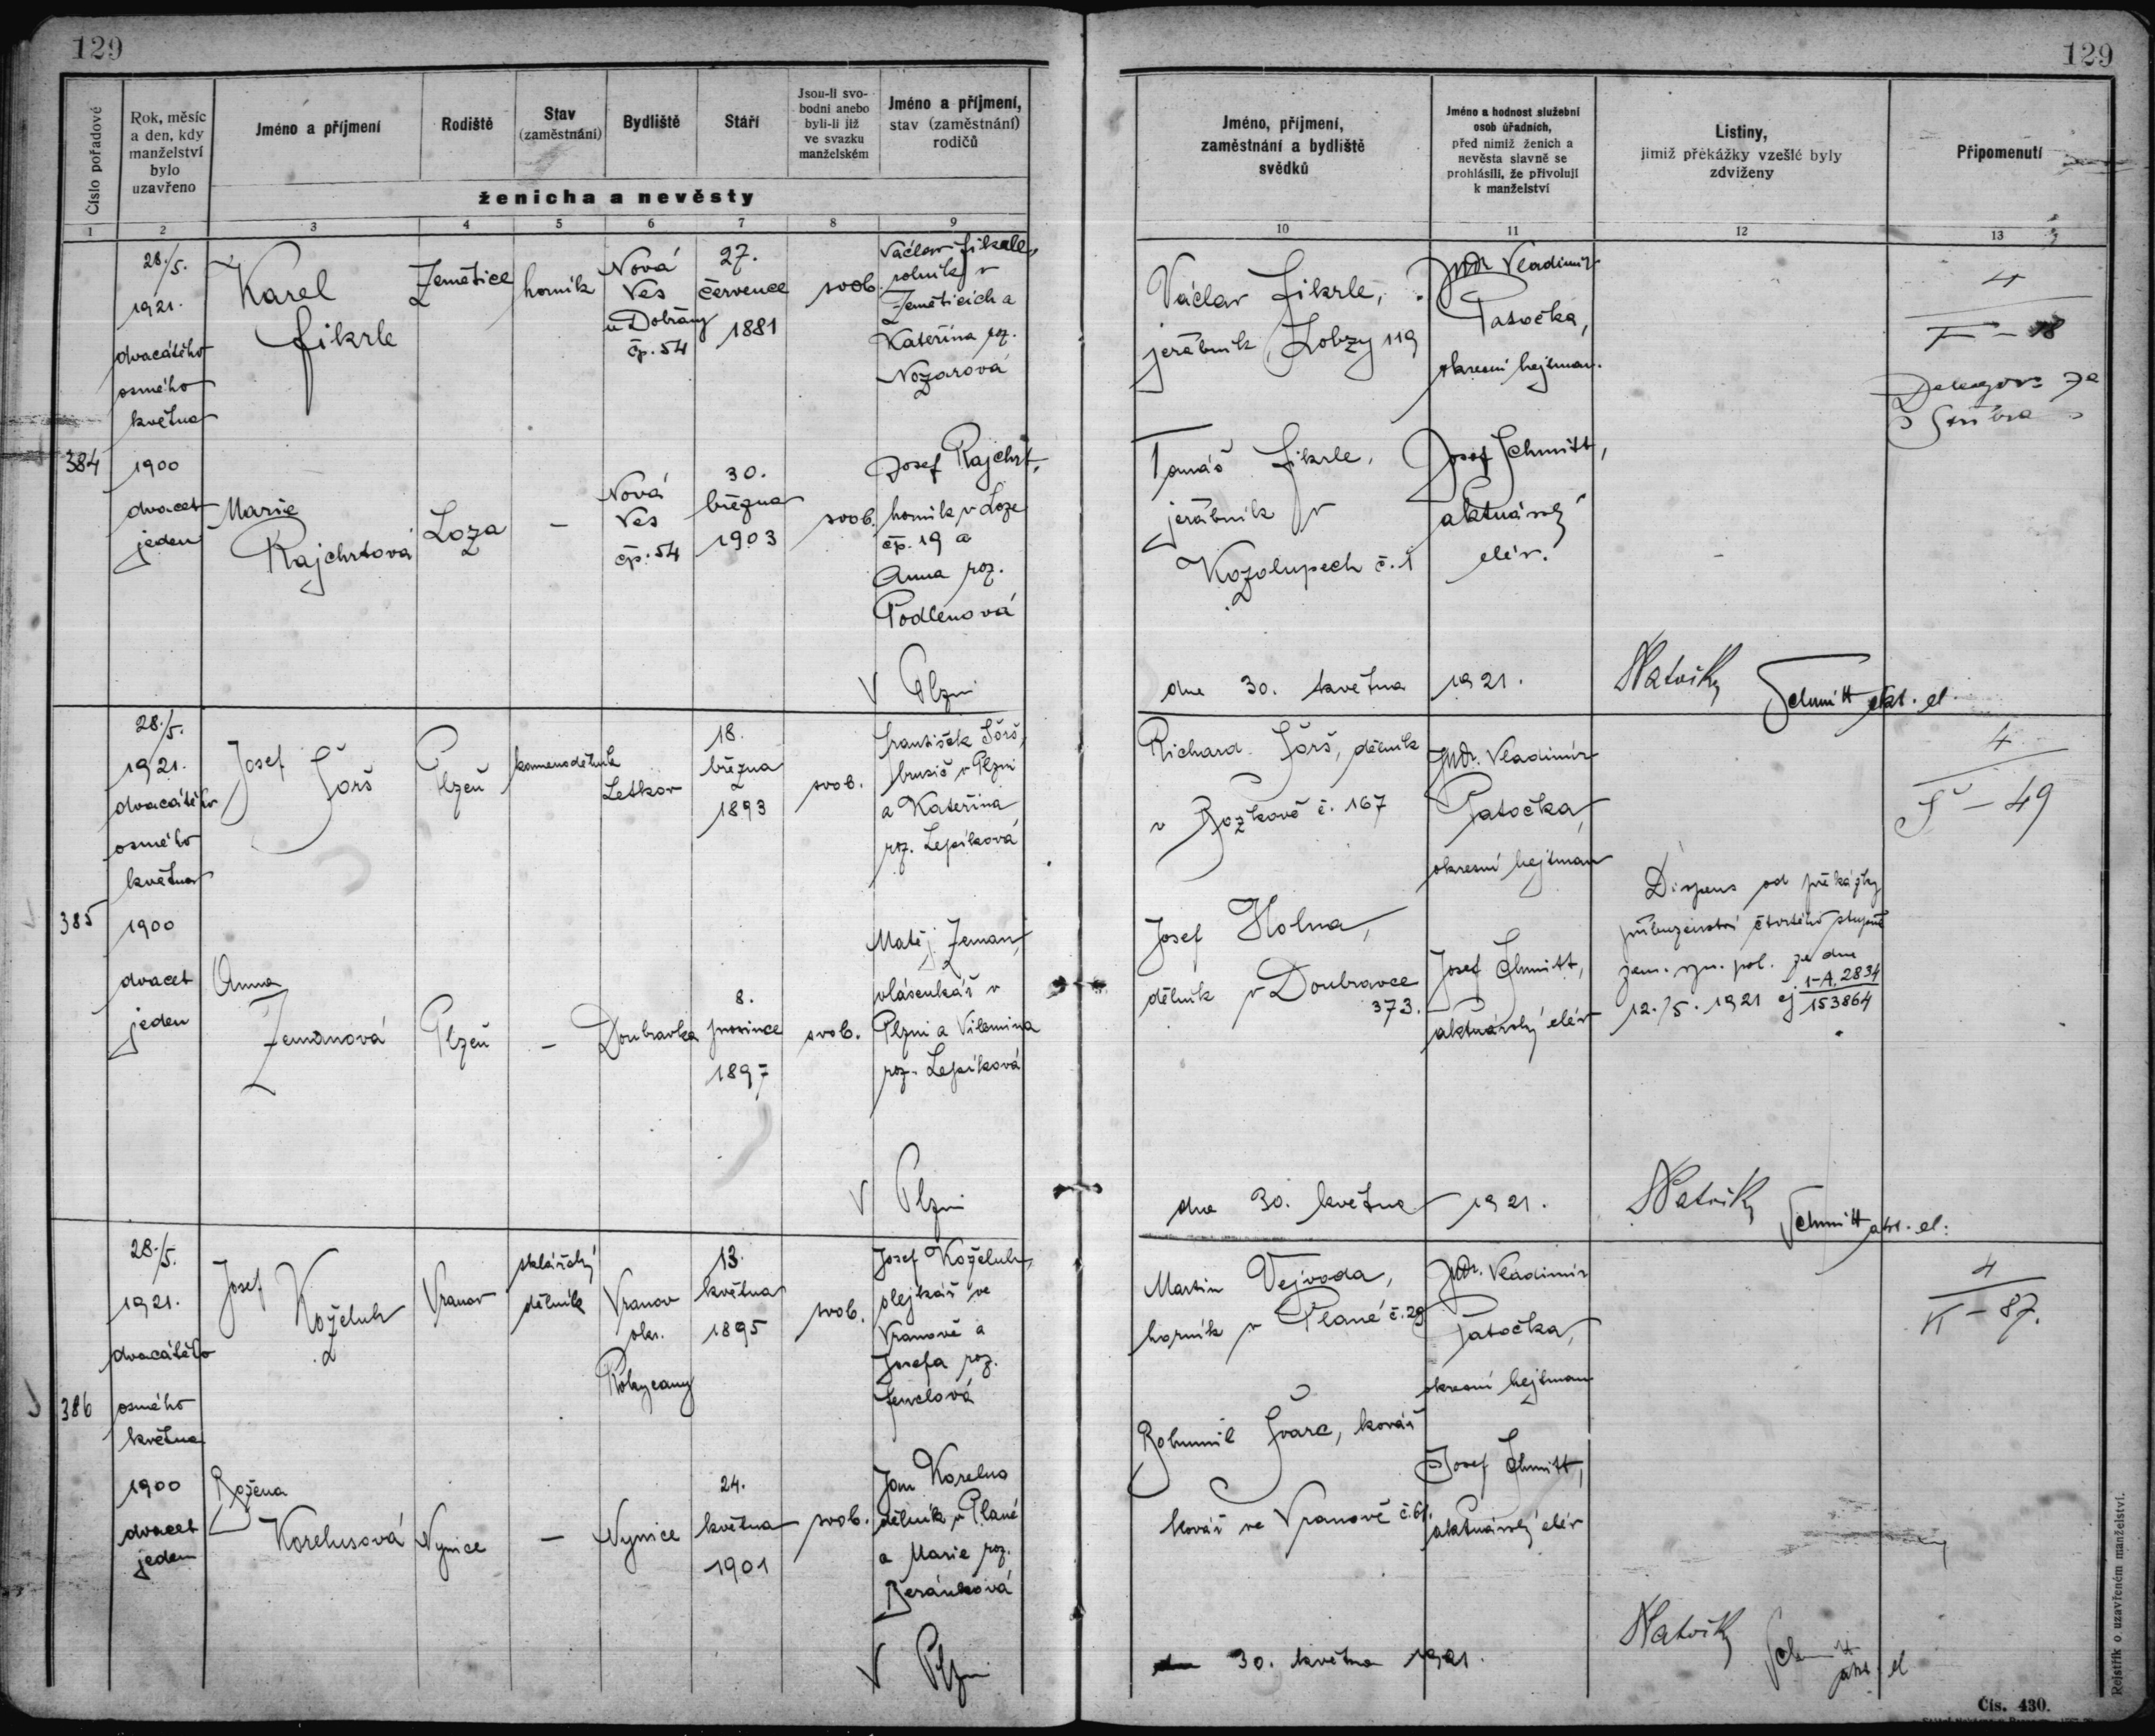 129
129
Číslo pořadové
Rok, měsíc
a den, kdy
manželství
bylo
uzavřeno
Jméno a příjmení
Rodiště
Stav
(zaměstnání)
Bydliště
Stáří
Jsou-li svo-
bodni anebo
byli-li již
ve svazku
manželském
Jméno a příjmení,
stav (zaměstnání)
rodičů
ženicha a nevěsty
Jméno, příjmení,
zaměstnání a bydliště
svědků
Jméno a hodnost služební
osob úřadních,
před nimiž ženich a
nevěsta slavně se
prohlásili, že přivolují
k manželství
Listiny,
jimiž překážky vzešlé byly
zdviženy
Připomenutí
1 2 3 4 5 6 7 8 9
10 11 12 13
384
28./5.
1921.
dvacátého
osmého
května
1900
dvacet
jeden
Karel
Fikrle
Zemětice
horník
Nová
Ves
u Dobřany
čp. 54
27.
července
1881
svob.
Václav Fikrle,
rolník v
Zeměticích a
Kateřina roz.
Nozarová
Marie
Rajchrtová
Loza
—
Nová
Ves
čp. 54
30.
března
1903
svob.
Josef Rajchrt,
horník v Loze
čp. 19 a
Anna roz.
Podlenová
Václav Fikrle,
jeřábník Lobzy 119
Tomáš Fikrle,
jeřábník v
Kozolupech č. 1
JUDr Vladimír
Patočka,
okresní hejtman.
Josef Schmitt,
aktuárský
elév.
4
F – 18
V Plzni
dne 30. května 1921.
Schmitt akt. el.
385
28./5.
1921.
dvacátého
osmého
května
1900
dvacet
jeden
Josef
Šörš
Plzeň
kamenodělník
Letkov
18.
března
1893
svob.
František Šörš,
brusič v Plzni
a Kateřina
roz. Lepíková
Anna
Zemanová
Plzeň
—
Doubravka
8.
prosince
1897
svob.
Matěj Zeman,
vlásenkář v
Plzni a Vilemina
roz. Lepíková
Richard Šörš, dělník
v Božkově č. 167
Josef Holna,
dělník v Doubravce
373.
JUDr. Vladimír
Patočka,
okresní hejtman
Josef Schmitt,
aktuárský elév
Dispens od překážky
příbuzenství čtvrtého stupně
zem. spr. pol. ze dne
12./5. 1921 čj 1-A, 2834
153864
4
Š – 49
V Plzni
dne 30. května 1921.
Schmitt akt. el.
386
28./5.
1921.
dvacátého
osmého
května
1900
dvacet
jeden
Josef
Koželuh
Vranov
sklářský
dělník
Vranov
okr.
Rokycany
13.
května
1895
svob.
Josef Koželuh,
olejkář ve
Vranově a
Josefa roz.
Fenclová
Božena
Korelusová
Nynice
—
Nynice
24.
května
1901
svob.
Jan Korelus
dělník v Plané
a Marie roz.
Beránková
Martin Vejvoda,
horník v Plané č. 29
Bohumil Švarc, kovář
kovář ve Vranově č. 61.
JUDr. Vladimír
Patočka,
okresní hejtman
Josef Schmitt,
aktuárský elév
4
K – 87.
V Plzni
30. května 1921.
Schmitt
akt. el
Rejstřík o uzavřeném manželství.
Čís. 430.